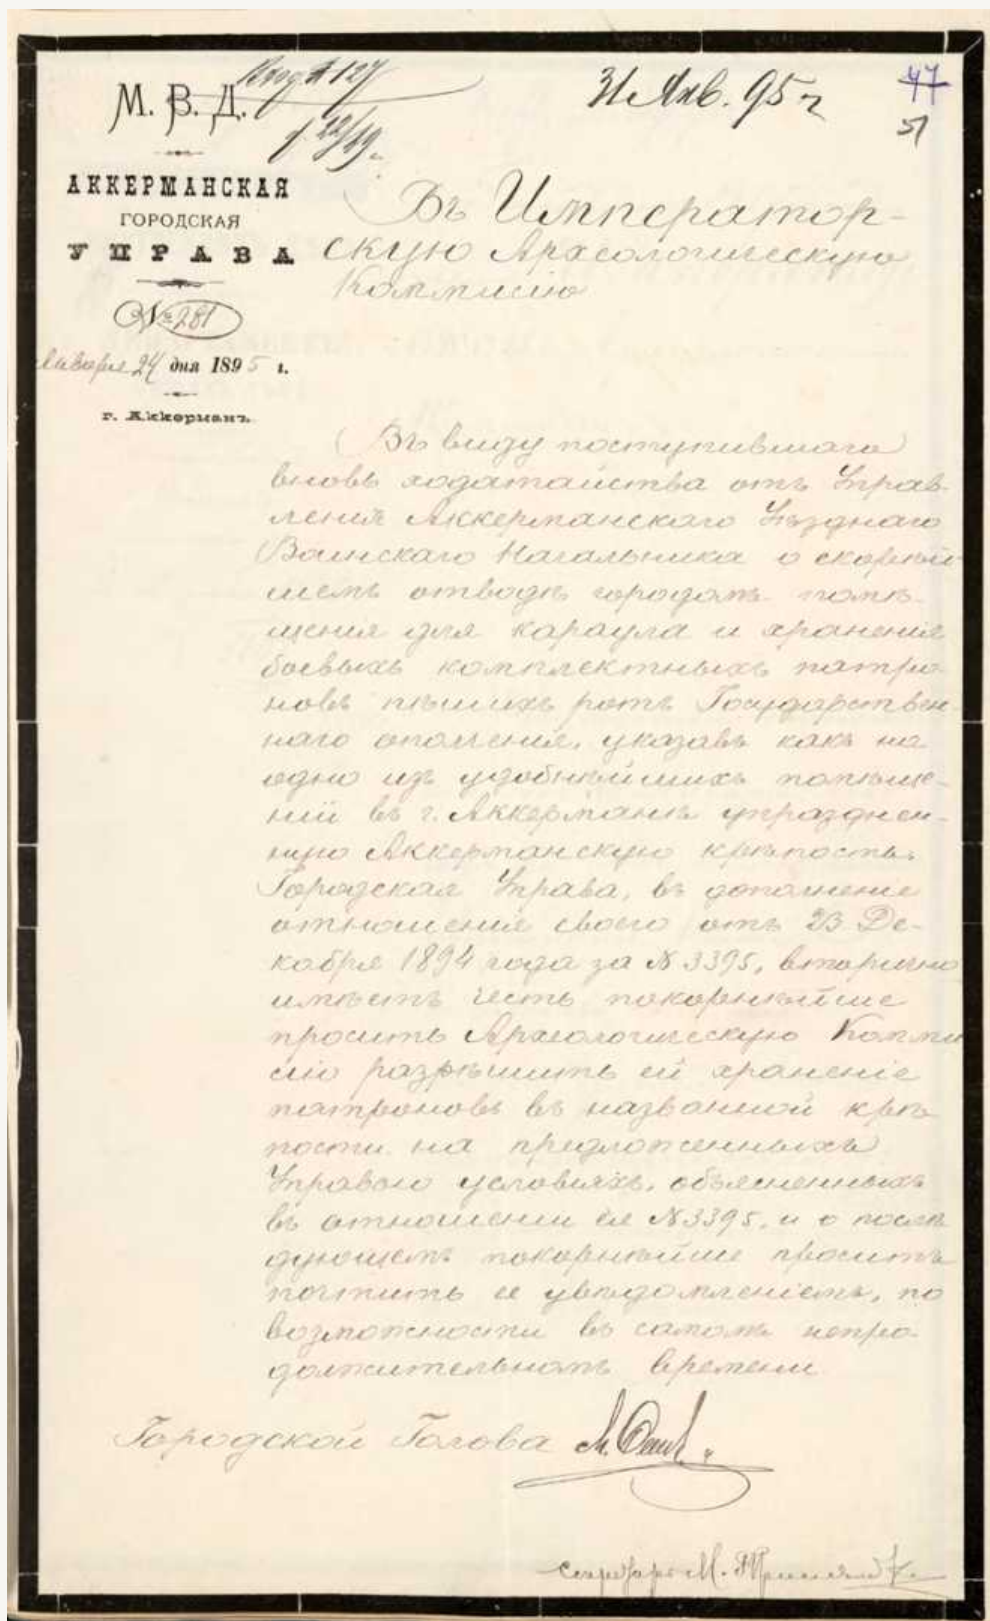 Вход № 127
31 Янв. 95 г
47
51
М. В. Д.
22/89
АККЕРМАНСКАЯ
ГОРОДСКАЯ
УПРАВА
№ 281
Января 24 дня 1895 г.
г. Аккерманъ.
Въ Император-
скую Археологическую
Коммисію
Въ виду поступившаго
вновь ходатайства отъ Управ-
ленія Аккерманскаго Уѣзднаго
Воинскаго Начальника о скорѣй-
шемъ отводѣ городомъ помѣ-
щенія для караула и храненія
боевыхъ комплектныхъ патро-
новъ пѣшихъ ротъ Государствен-
наго ополченія, указавъ какъ на
одно изъ удобнѣйшихъ помѣще-
ній въ г. Аккерманѣ упразднен-
ную Аккерманскую крѣпость.
Городская Управа, въ дополненіе
отношенія своего отъ 23 Де-
кабря 1894 года за № 3395, вторично
имѣетъ честь покорнѣйше
просить Археологическую Комми
сію разрѣшить ей храненіе
патроновъ въ названной крѣ-
пости на предложенныхъ
Управою условіяхъ, объясненныхъ
въ отношеніи ея № 3395, и о послѣ
дующемъ покорнѣйше проситъ
почтить ее увѣдомленіемъ, по
возможности въ самомъ непро-
должительномъ времени.
Городской Голова
Секретарь М.